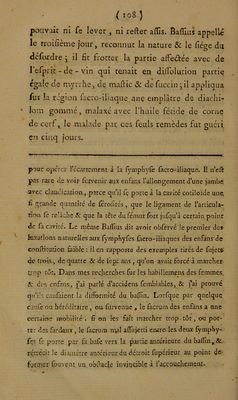 ( 108 )
pouvait ni se lever , ni rester assis. Bassius appellé
le troisième jour , reconnut la nature & le siége du
désordre ; il fit frotter la partie affectée avec de
l'esprit - de - vin qui tenait en dissolution partie
égale de myrrhe, de mastic & de succin; il appliqua
sur la région sacro-iliaque une emplâtre de diachi-
lom gommé, malaxé avec l'huile fétide de corne
de cerf, le malade par ces seuls remèdes fut guéri
en cinq jours.
pour opérer l'écartement à la symphyse sacro-iliaque. Il n'est
pas rare de voir survenir aux enfans l'allongement d'une jambe
avec claudication, parce qu'il se porte à la cavité cotiloide une
si grande quantité de sérosités, que le ligament de l'articula-
tion se relâche & que la tête du fémur sort jusqu'à certain point
de sa cavité. Le même Bassius dit avoir observé le premier des
luxations naturelles aux symphyses sacro-iliaques des enfans de
constitution faible : il en rapporte des exemples tirés de sujets
de trois, de quatre & de sept ans, qu'on avait forcé à marcher
trop tôt. Dans mes recherches sur les habillemens des femmes
& des enfans, j'ai parlé d'accidens semblables, & j'ai prouvé
qu'ils causaient la difformité du bassin. Lorsque par quelque
cause ou héréditaire, ou survenue, le sacrum des enfans a une
certaine mobilité. si on les fait marcher trop-tôt, ou por-
ter des fardaux, le sacrum mal assujetti entre les deux symphy-
ses se porte par sa base vers la partie antérieure du bassin, &
rétrécit le diamètre antérieur du détroit supérieur au point de
former souvent un obstacle invincible à l'accouchement.